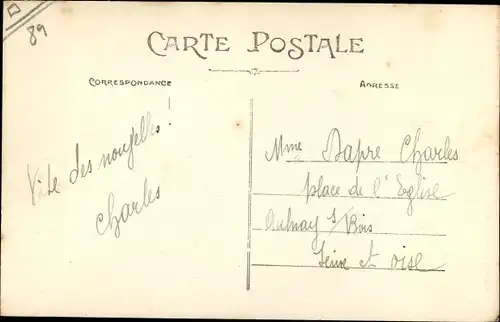 89
CARTE POSTALE
CORRESPONDANCE
ADRESSE
Vite des nouvelles !
Charles
Mme Dapre Charles
place de l'Eglise
Aulnay s/ Bois
Seine et oise